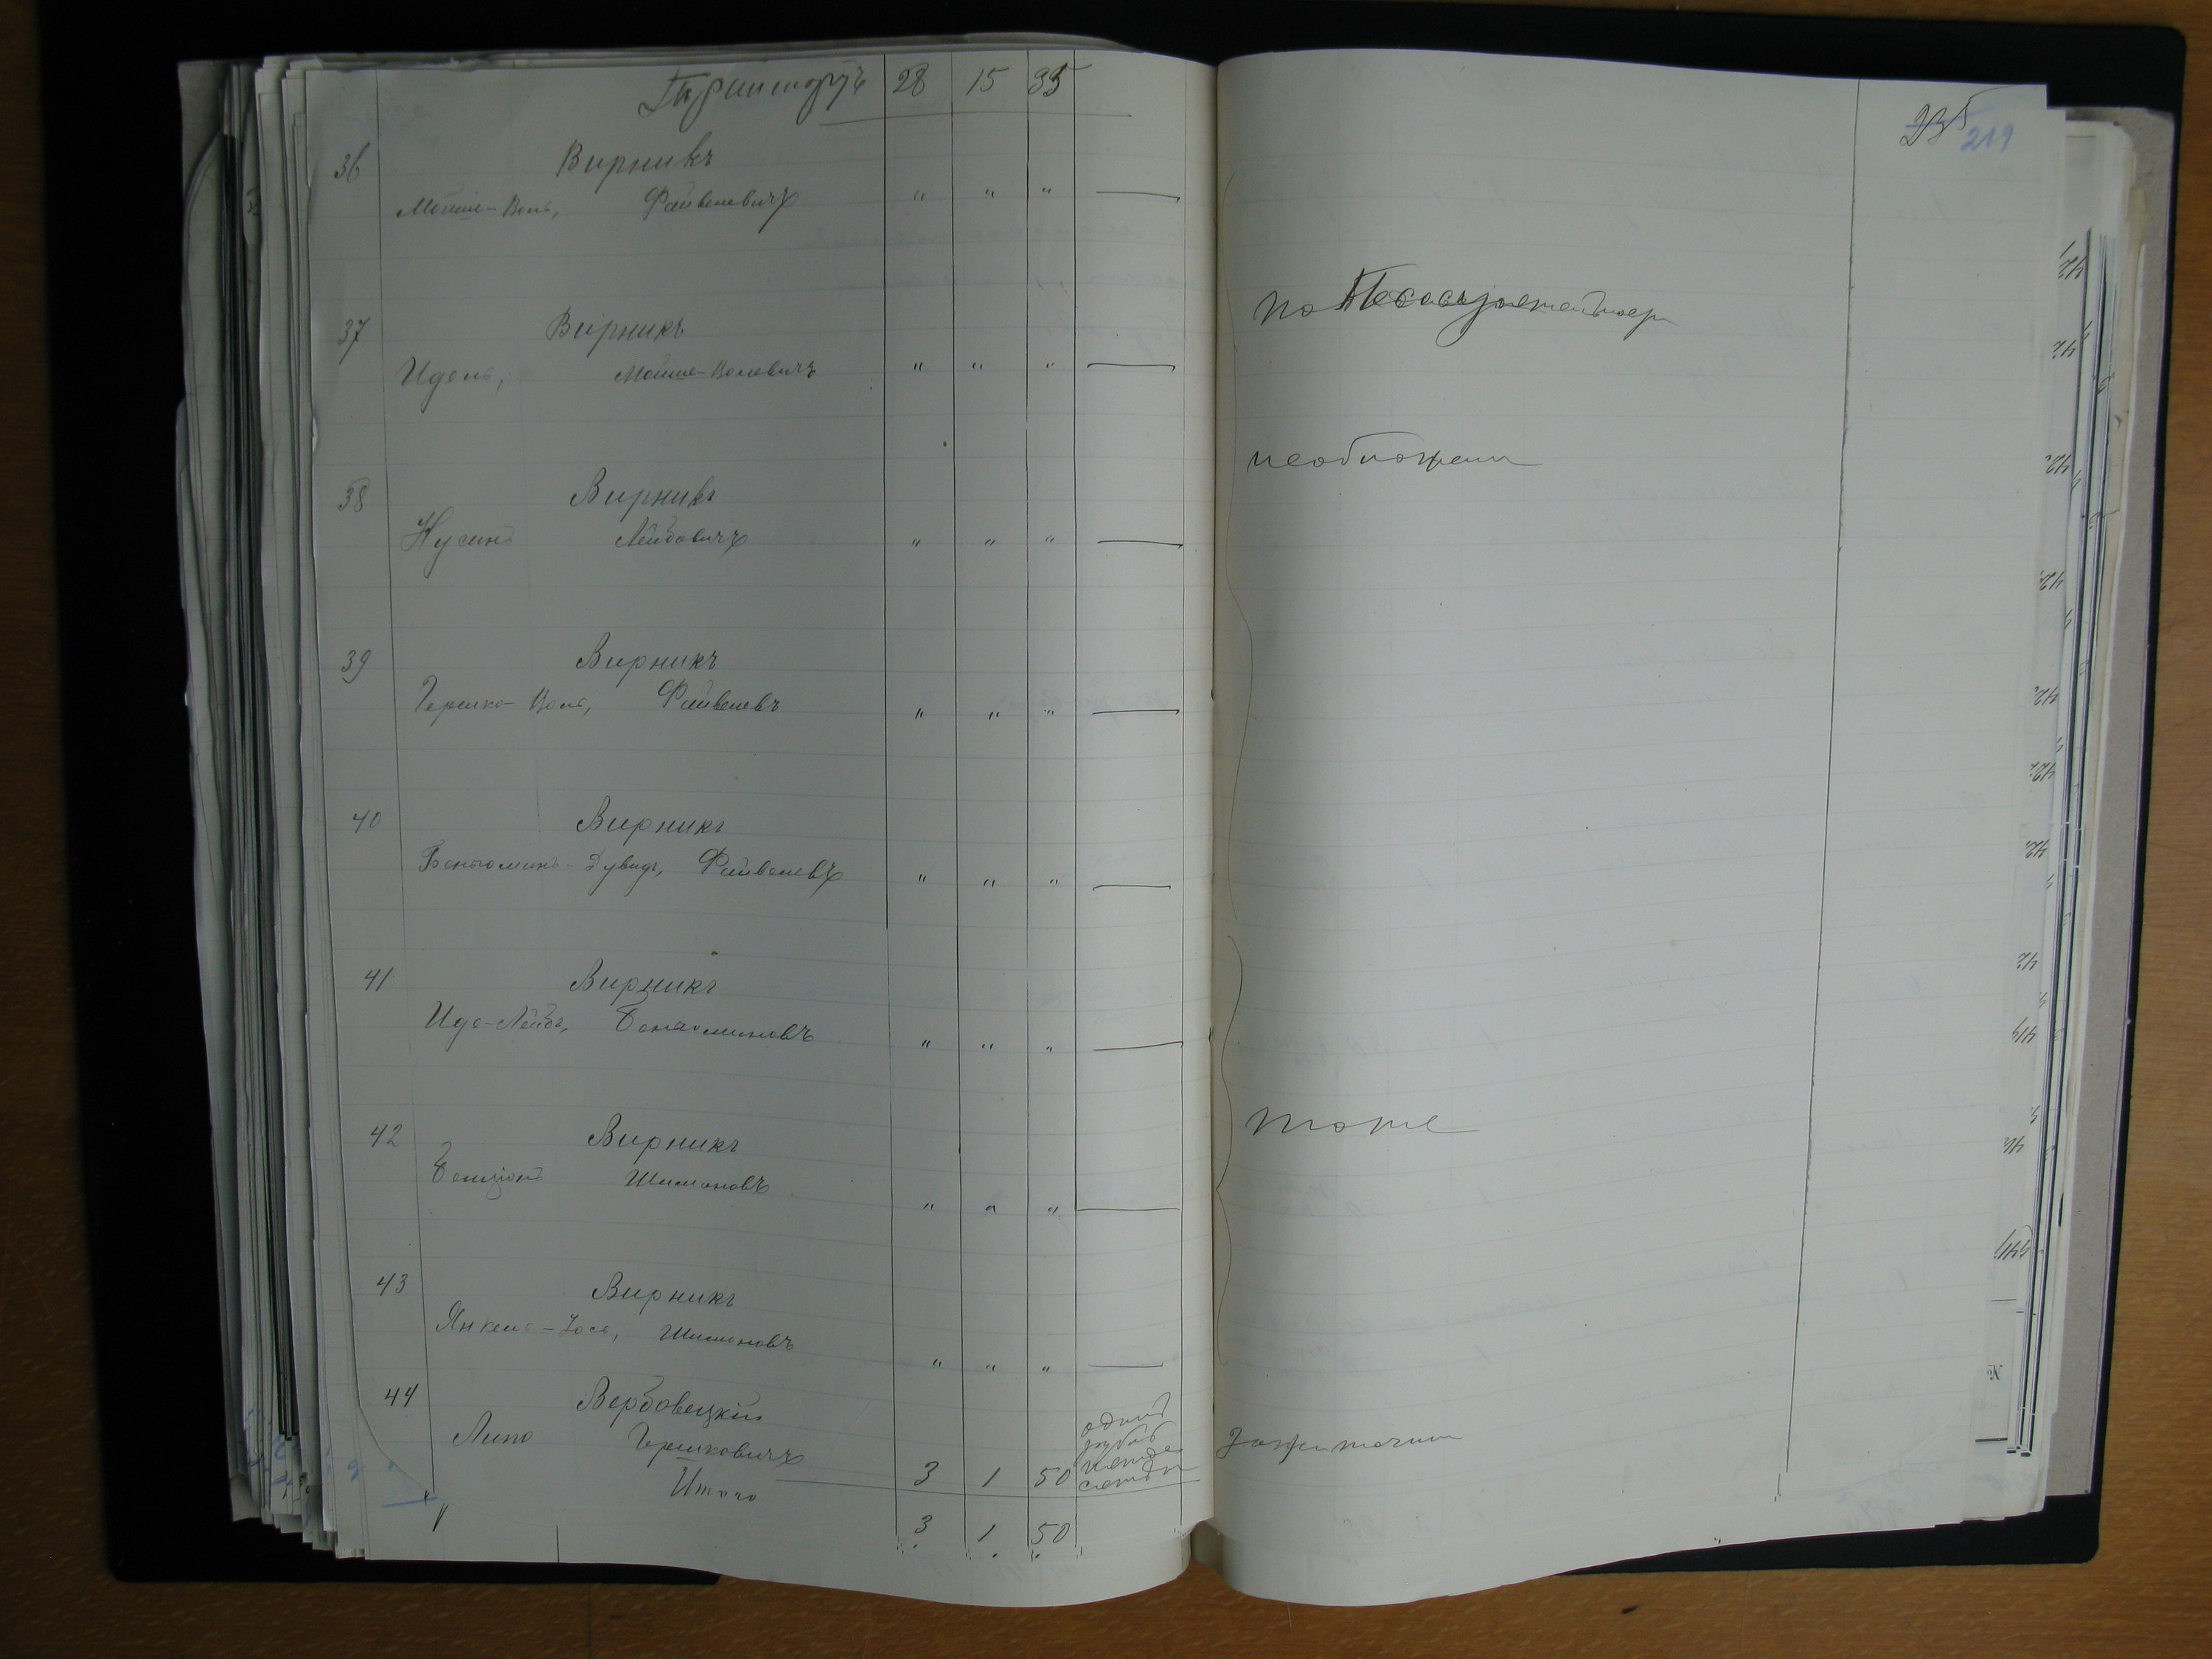 Транспортъ 28 15 95
235 219
36 Вирникъ
Мойше-Волъ, Файвелевичъ " " " —
37 Вирникъ
Идель, Мойше-Волевичъ " " " —
38 Вирникъ
Нусинъ Лейбовичъ " " " —
39 Вирникъ
Гершко-Волъ, Файвелевъ " " " —
40 Вирникъ
Беньоминъ-Дувидъ, Файвелевъ " " " —
41 Вирникъ
Идо-Лейба, Беньоминовъ " " " —
42 Вирникъ
Бенціонъ Шимоновъ " " " —
43 Вирникъ
Янкель-Іосъ, Шимоновъ " " " —
44 Вербовецкій
Липо Гершковичъ 3 1 50 одинъ рубль пятьде сятъ
Итого
3 1 50
по
необложен
тоже
зажиточн